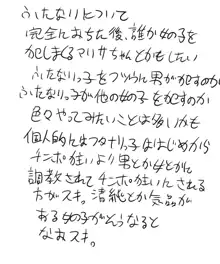 ふたなりについて
完全におちた後、誰か女の子を
犯しまくるマリサちゃんとかもしたい
ふたなりっ子をフツウに男が犯すのか
ふたなりっ子が他の女の子を犯すのか
色々やってみたいことは多いかも
個人的にはフタナリっ子ははじめから
チンポ狂いより男とか女とかに
調教されてチンポ狂いにされる
方がスキ。清純とか気品が
ある女の子がそうなると
なおスキ。